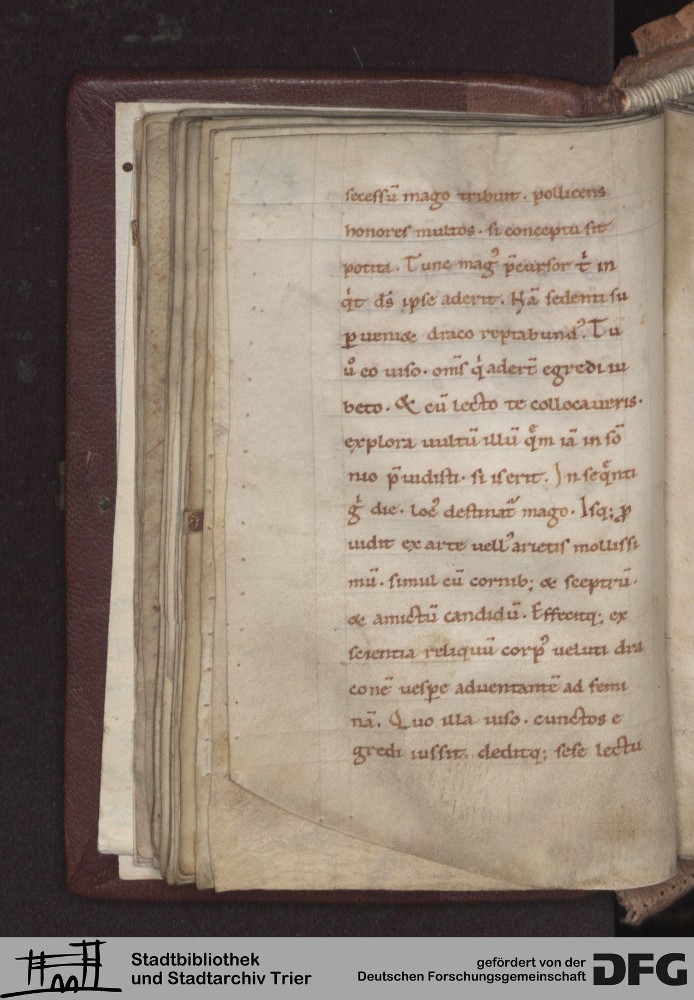 secessū mago tribuit . pollicens
honores multos . si conceptu sit
potita . Tunc magꝰ p̄cursor t̉ in
q̉t ds̄ ipse aderit . Hā sedenti su
ꝑueniæ draco reptabundꝰ . Tu
u̾ eo uiso . om̄s q̉ adert̄ egredi iu
beto . & cū lecto te collocaueris .
explora uultū illū q̄m iā in sō
nio p̄uidisti . si is erit . In seq̄nti
g̉ die . locꝰ destinat᷑ mago . Isq; ꝓ
uidit ex arte uellꝰ arietis mollissi
mū . simul cū cornib; & sceptrū .
& amictū candidū . Effecitq; ex
scientia reliquū corpꝰ ueluti dra
conē uesꝑe aduentante ad femi
nā . Quo illa uiso . cunctos e
gredi iussit . deditq; sese lectu
Stadtbibliothek
und Stadtarchiv Trier
gefördert von der
Deutschen Forschungsgemeinschaft
DFG